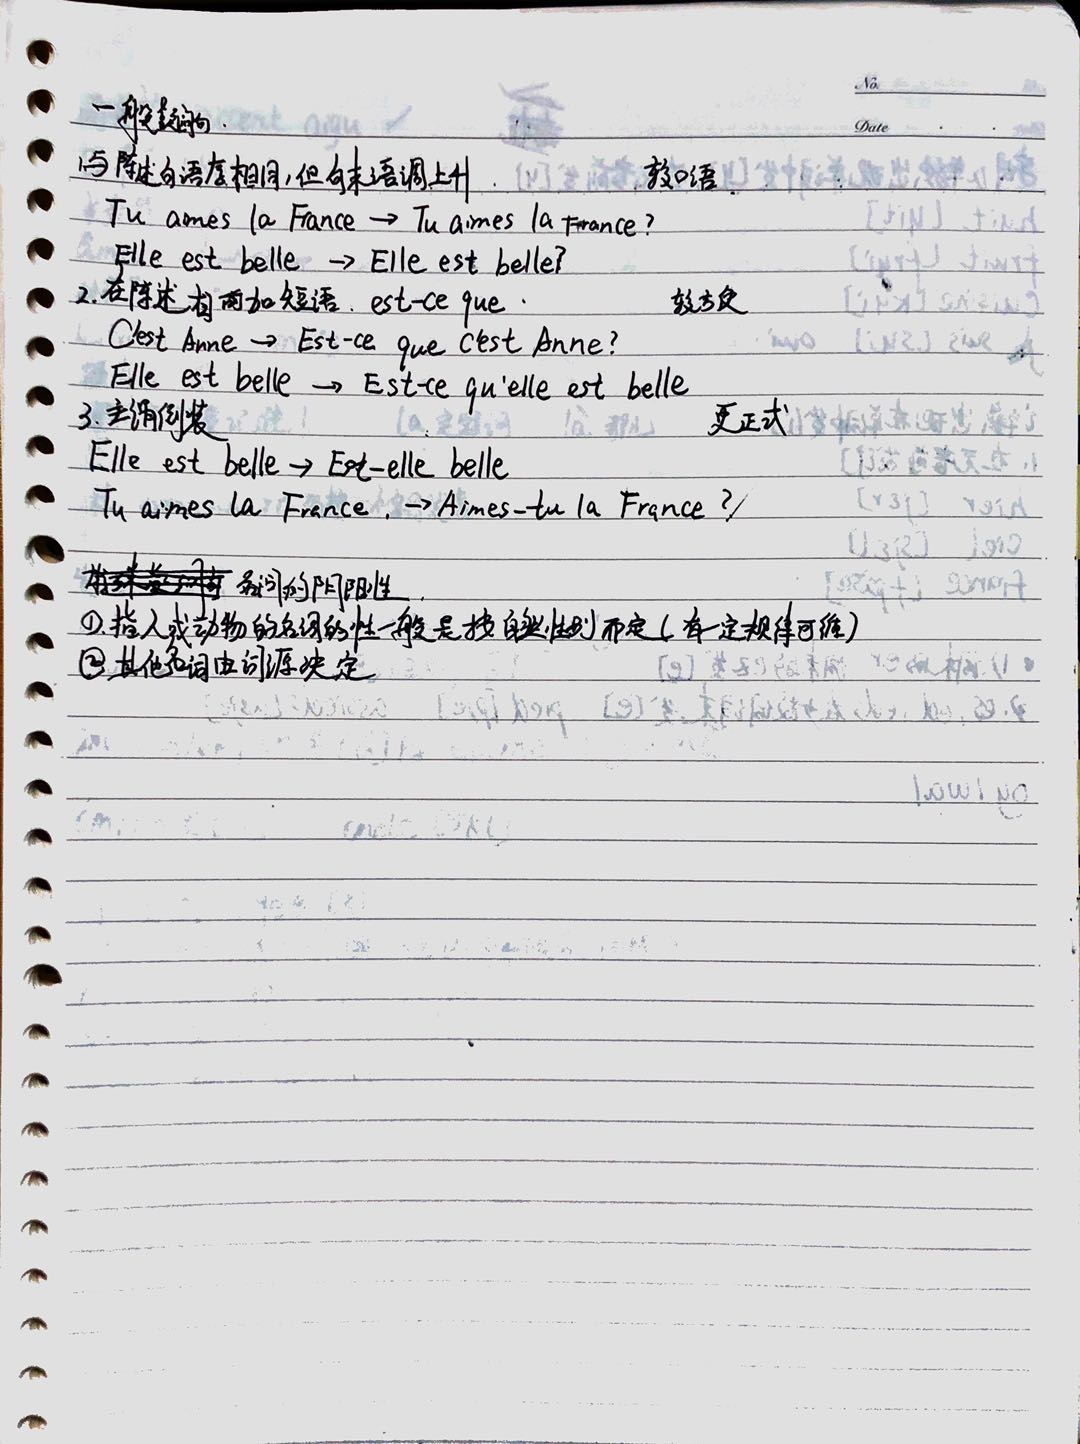 No.
Date
一般疑问句.
1.与陈述句语序相同,但句末语调上升. 较口语.
Tu aimes la France → Tu aimes la France?
Elle est belle → Elle est belle?
2.在陈述句前加短语. est-ce que. 较方便
C'est Anne → Est-ce que c'est Anne?
Elle est belle → Est-ce qu'elle est belle
3.主谓倒装 更正式
Elle est belle → Est-elle belle
Tu aimes la France. → Aimes-tu la France?
名词的阴阳性.
①.指人或动物的名词的性一般是按自然性别而定(有一定规律可循)
②其他名词由词源决定